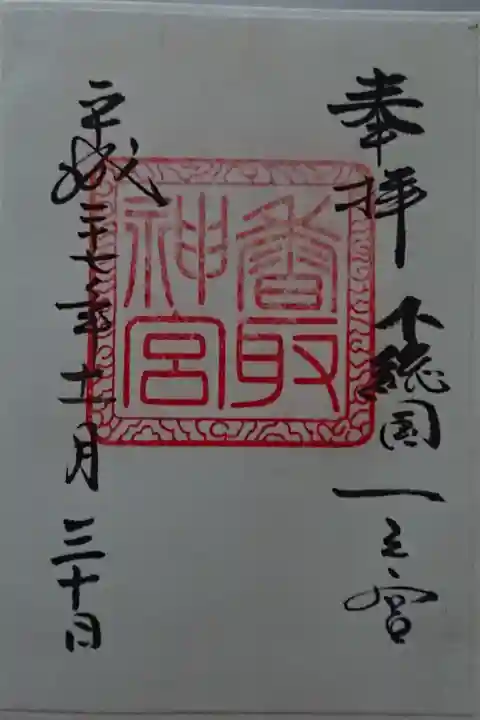 奉拝
下総国一之宮
香取
神宮
平成二十七年十一月三十日